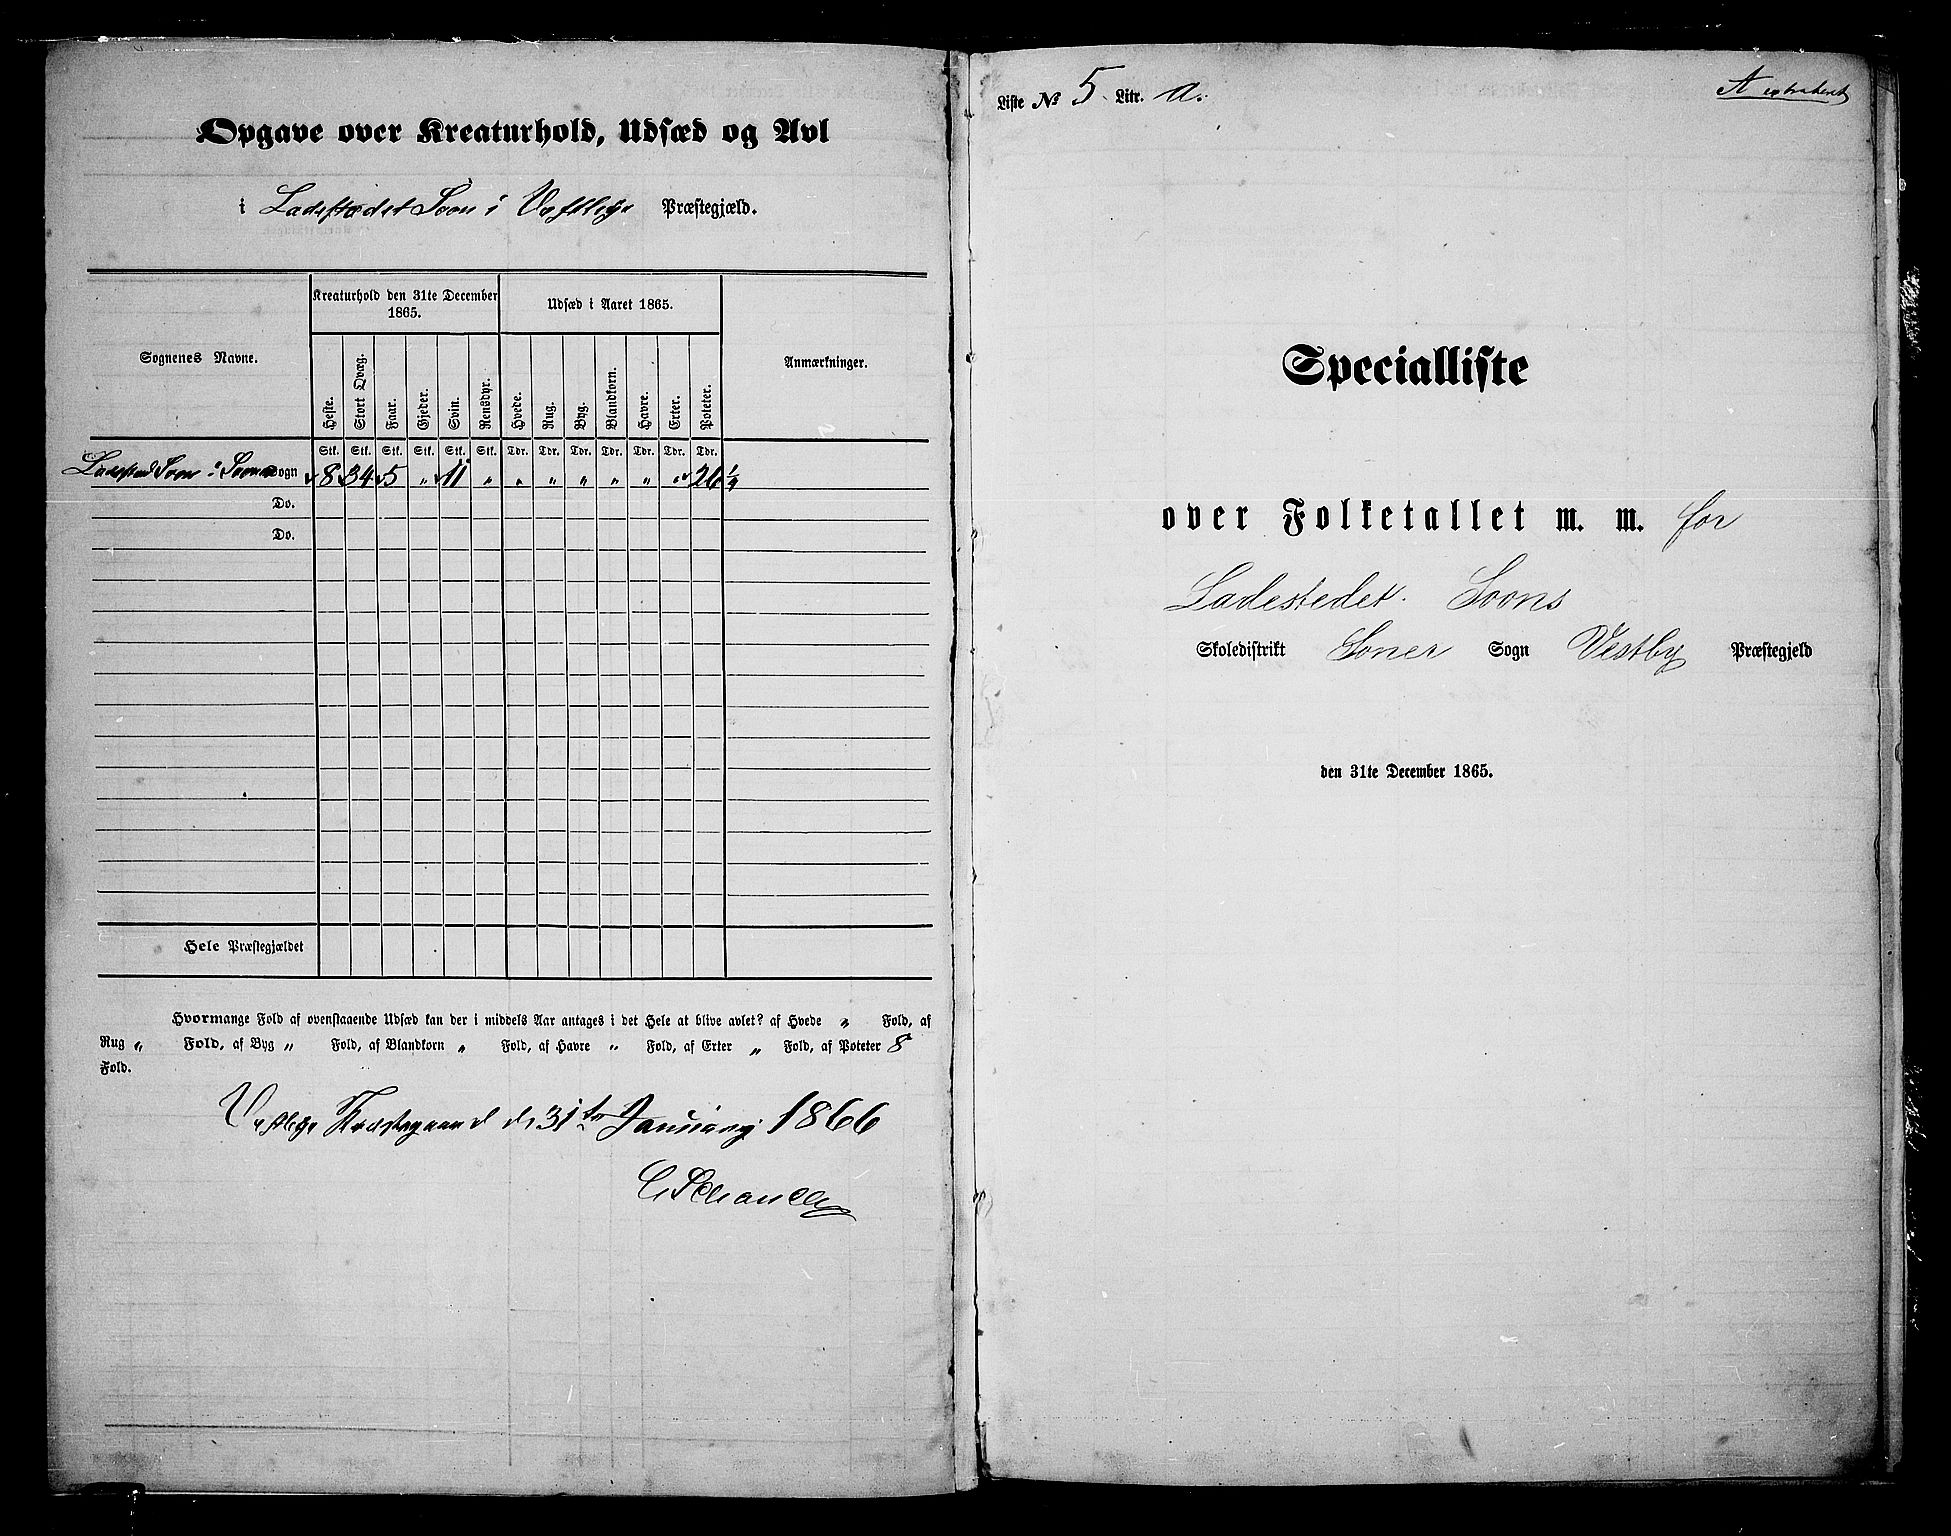 Opgave over Kreaturhold, Udsæd og Avl
i Ladestedet Soon i Vestbye Præstegjæld.
Sognenes Navne.
Kreaturhold den 31te December 1865.
Udsæd i Aaret 1865.
Anmærkninger.
Heste. Stort Qvæg. Faar. Gjeder. Svin. Rensdyr. Hvede. Rug. Byg. Blandkorn. Havre. Erter. Poteter.
Stk. Stk. Stk. Stk. Stk. Stk. Tdr. Tdr. Tdr. Tdr. Tdr. Tdr. Tdr.
Ladested Soon i Soner Sogn 8 34 5 " 11 " " " " " " " 26 1/4
Do.
Do.
Hele Præstegjældet
Hvormange Fold af ovenstaaende Udsæd kan der i middels Aar antages i det Hele at blive avlet? af Hvede " Fold, af
Rug " Fold, af Byg " Fold, af Blandkorn " Fold, af Havre " Fold, af Erter " Fold, af Poteter 8
Fold.
Vestbye Præstegaard d. 31te Januarij 1866
Liste No 5. Litr. a.
A extraheret
Specialliste
over Folketallet m. m. for
Ladestedet Soons
Skoledistrikt Soner Sogn Vestby Præstegjeld
den 31te December 1865.